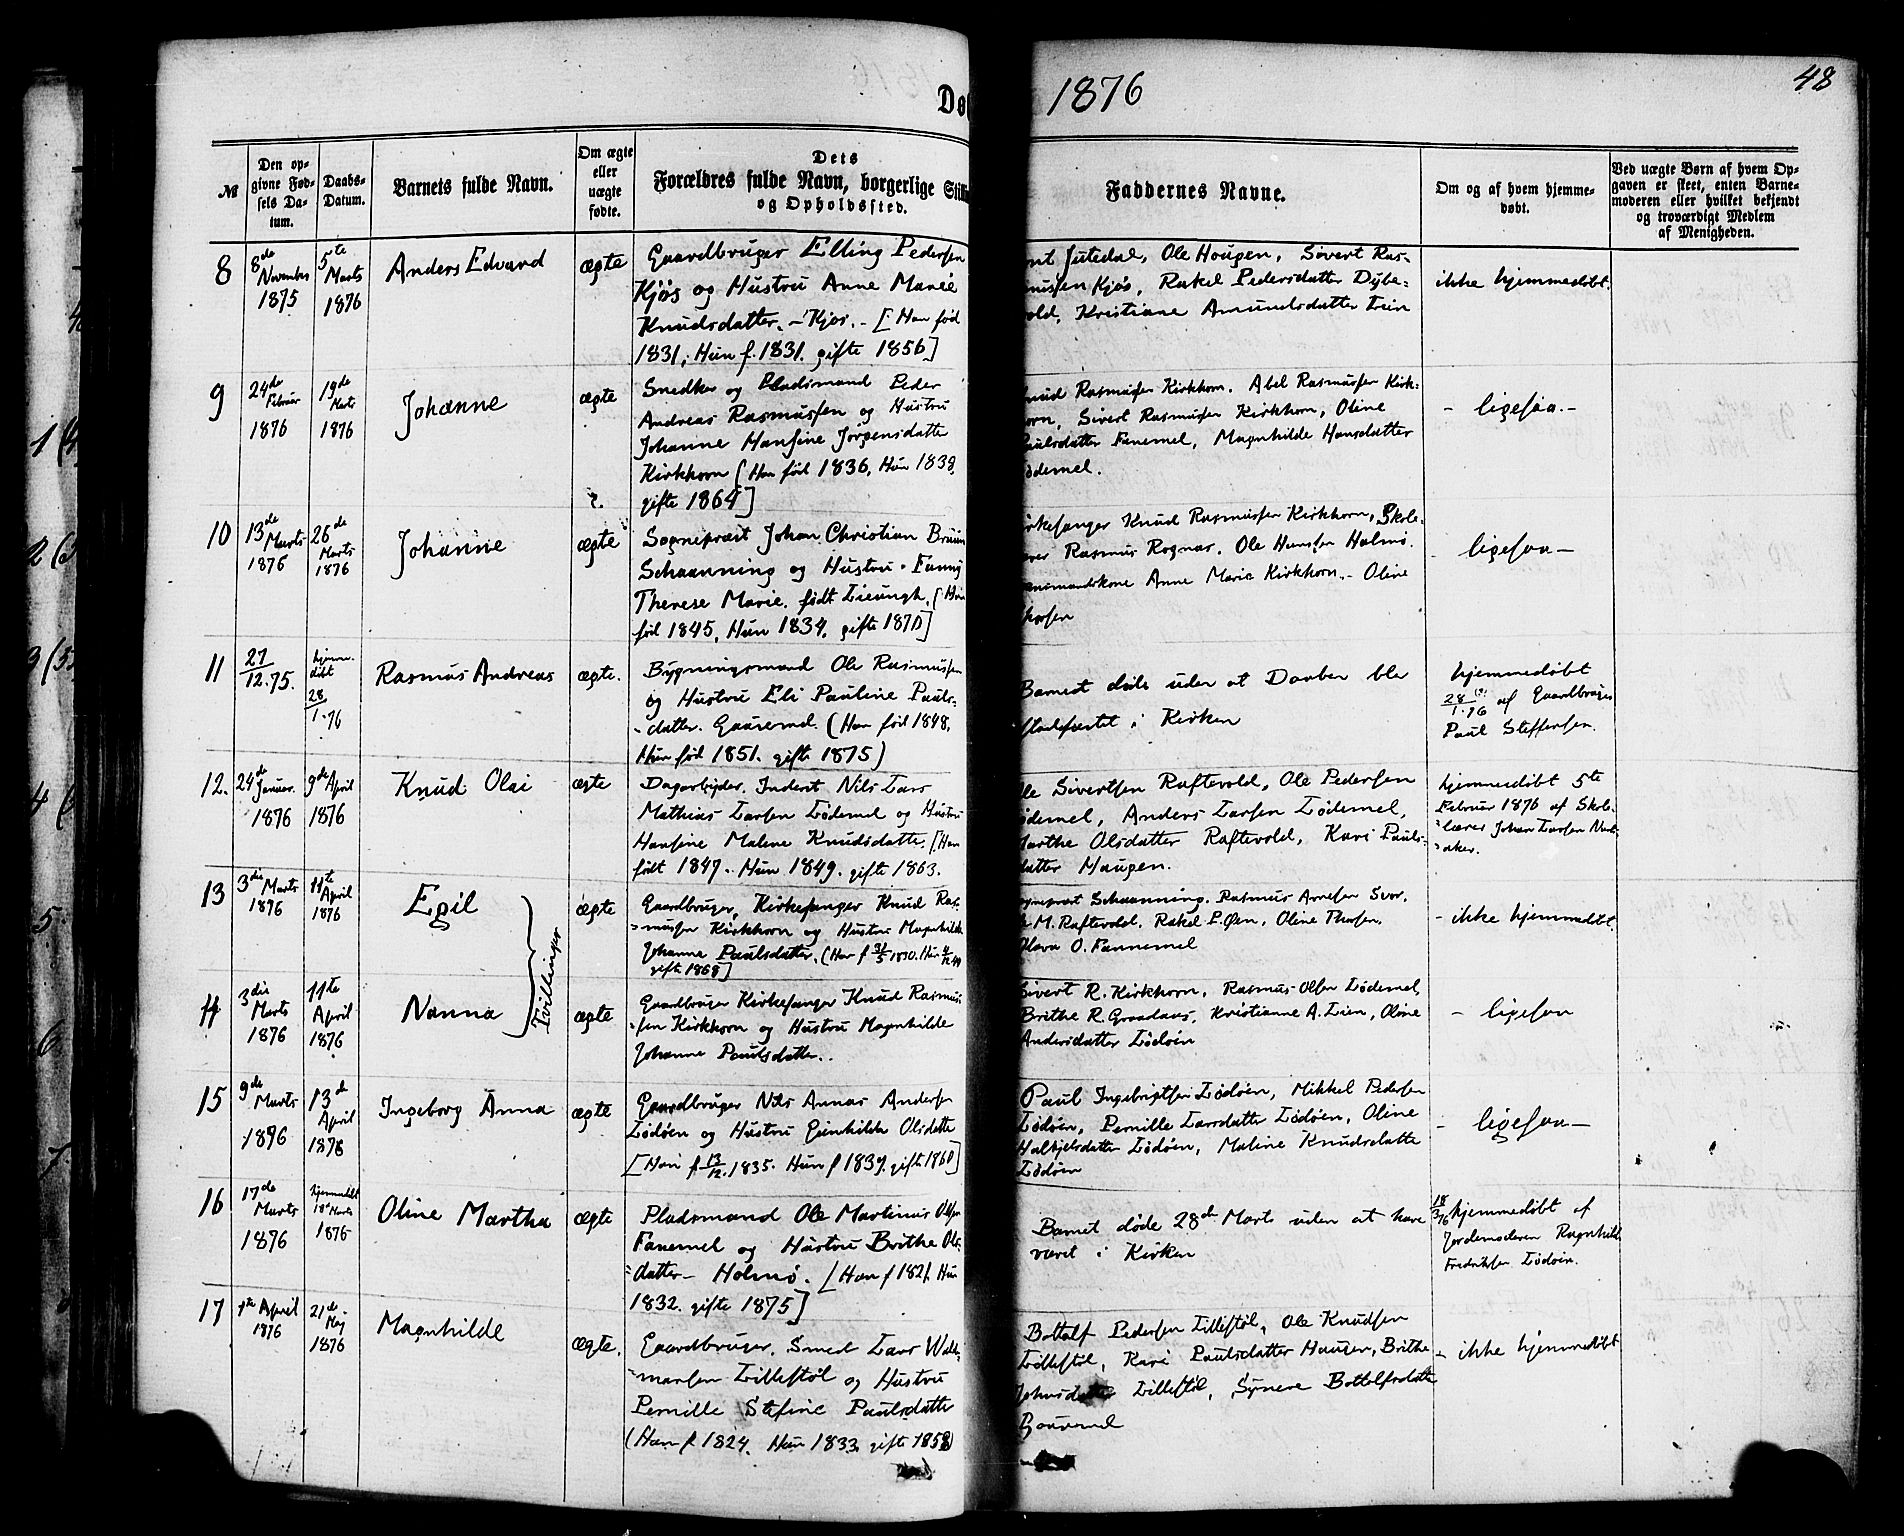 1876
48
№
Den op-
givne Fød-
sels Da-
tum.
Daabs-
Datum.
Barnets fulde Navn.
Om ægte
eller
uægte
fødte.
Dets
Forældres fulde Navn, borgerlige
og Opholdssted.
Faddernes Navne.
Om og af hvem hjemme-
døbt.
Ved uægte Børn af hvem Op-
gaven er skeet, enten Barne-
moderen eller hvilket bekjendt
og troværdigt Medlem
af Menigheden.
8
8de
November
1875
5te
Marts
1876
Anders Edvard
ægte
Gaardbruger Elling Pedersen
Kjøs og Hustru Anne Marie
Knudsdatter. - Kjøs. - [Han fød
1831, Hun f. 1831. gifte 1856]
Jutedal, Ole Hougen, Sivert Ras-
Kjøs, Rakel Pedersdatter Dybe-
vold, Kristiane Amundsdatter Lein
ikke hjemmedøbt.
9
24de
Februar
1876
19de
Marts
1876
Johanne
ægte
Snedker og Pladsmand Peder
Andreas Rasmussen og Hustru
Johanne Hansine Jørgensdatter
Kirkhorn [Han fød 1836, Hun 1838,
gifte 1864]
Knud Rasmussen Kirkhorn. Abel Rasmussen Kirk-
horn, Sivert Rasmussen Kirkhorn, Oline
Paulsdatter Fanemel, Magnhilde Hansdatter
Lødemel.
- ligesaa. -
10
13de
Marts
1876
26de
Marts
1876
Johanne
ægte
Sognepræst Johan Christian Bruun
Schaanning og Hustru Fanny
Therese Marie, født Lieungh. (Han
fød 1845, Hun 1834. gifte 1870]
Kirkesanger Knud Rasmussen Kirkhorn, Skole-
lærer Rasmus Rognar. Ole Hansen Holmø.
Anne Marie Kirkhorn. - Oline
ligesaa -
11
27
12.75.
hjemme-
døbt
28
1.76
Rasmus Andreas
ægte.
Bygningsmand Ole Rasmussen
og Hustru Eli Pauline Pauls-
datter. Gauremel. (Han fød 1848,
Hun fød 1851. gifte 1875)
Barnet døde uden at Daaben blev
stadfæstet i Kirken
hjemmedøbt
28 (?)
1.76 af Gaardbruger
Paul Steffensen.
12.
24de
Januar.
1876
9de April
1876
Knud Olai
ægte
Dagarbeider. Inderst Nils Lars
Mathias Larsen Lødemel og Hustru
Hansine Malene Knudsdatter. [Han
født 1847. Hun 1849. gifte 1863.
Ole Sivertsen Raftevold, Ole Pedersen
Lødemel, Anders Larsen Lødemel,
Marthe Olsdatter Raftevold, Kari Pauls-
datter Haugen.
hjemmedøbt 5te
Februar 1876 af Skole-
lærer Johan Larsen
13
3die Marts
1876
11te
April
1876
Egil
ægte
Gaardbruger, Kirkesanger Knud Ras-
mussen Kirkhorn og Hustru Magnhilde
Johanne Paulsdatter. (Han f 31/5 1830. Hun
gifte 1868]
Sognepræst Schaanning. Rasmus Arnesen Svor.
M. Raftevold. Rakel P. Øen, Oline Thorsen.
Olava O. Fannemel
- ikke hjemmedøbt.
Tvillinger
14
3die
Marts
1876
11te
April
1876
Nanna
ægte
Gaardbruger Kirkesanger Knud Rasmus-
sen Kirkhorn og Hustru Magnhilde
Johanne Paulsdatter..
Sivert R. Kirkhorn, Rasmus Olsen Lødemel,
Brithe R. Graadaas, Kristianne A. Lien, Oline
Andersdatter Lødøen
- ligesaa
15
9de
Marts
1876
13de
April
1876
Ingeborg Anna
ægte
Gaardbruger Nils Annas Andersen
Lødøen og Hustru Gunhilda Olsdatter
[Han f 13/12. 1835. Hun f 1839. gifte 1860]
Paul Ingebrigtsen Lødøen, Mikkel Pedersen
Lødøen, Pernille Larsdatter Lødøen, Oline
Halkjelsdatter Lødøen, Maline Knudsdatter
Lødøen
- ligesaa -
16
17de
Marts
1876
hjemmedøbt
18de Marts
1876
Oline Martha
ægte
Pladsmand Ole Martinus Olsen
Fanemel og Hustru Brithe Ols-
datter - Holmø. [Han f 1821. Hun
1832. gifte 1875]
Barnet døde 28de Marts uden at have
været i Kirken
18/3 76 hjemmedøbt af
Jordemoderen Ragnhild
Fredriksen Lødøen.
17
1ste April
1876
21de
Maj
1876
Magnhilde
ægte.
Gaardbruger, Smed Lars Walde-
marsen Lillestøl og Hustru
Pernille Stefine Paulsdatter
(Han f 1824. Hun 1833. gifte 1858)
Bottolf Pedersen Lillestøl, Ole Knudsen
Lillestøl, Kari Paulsdatter Haugen, Brithe
Johnsdatter Lillestøl, Synneve Bottolfsdatter
Gauremel
- ikke hjemmedøbt